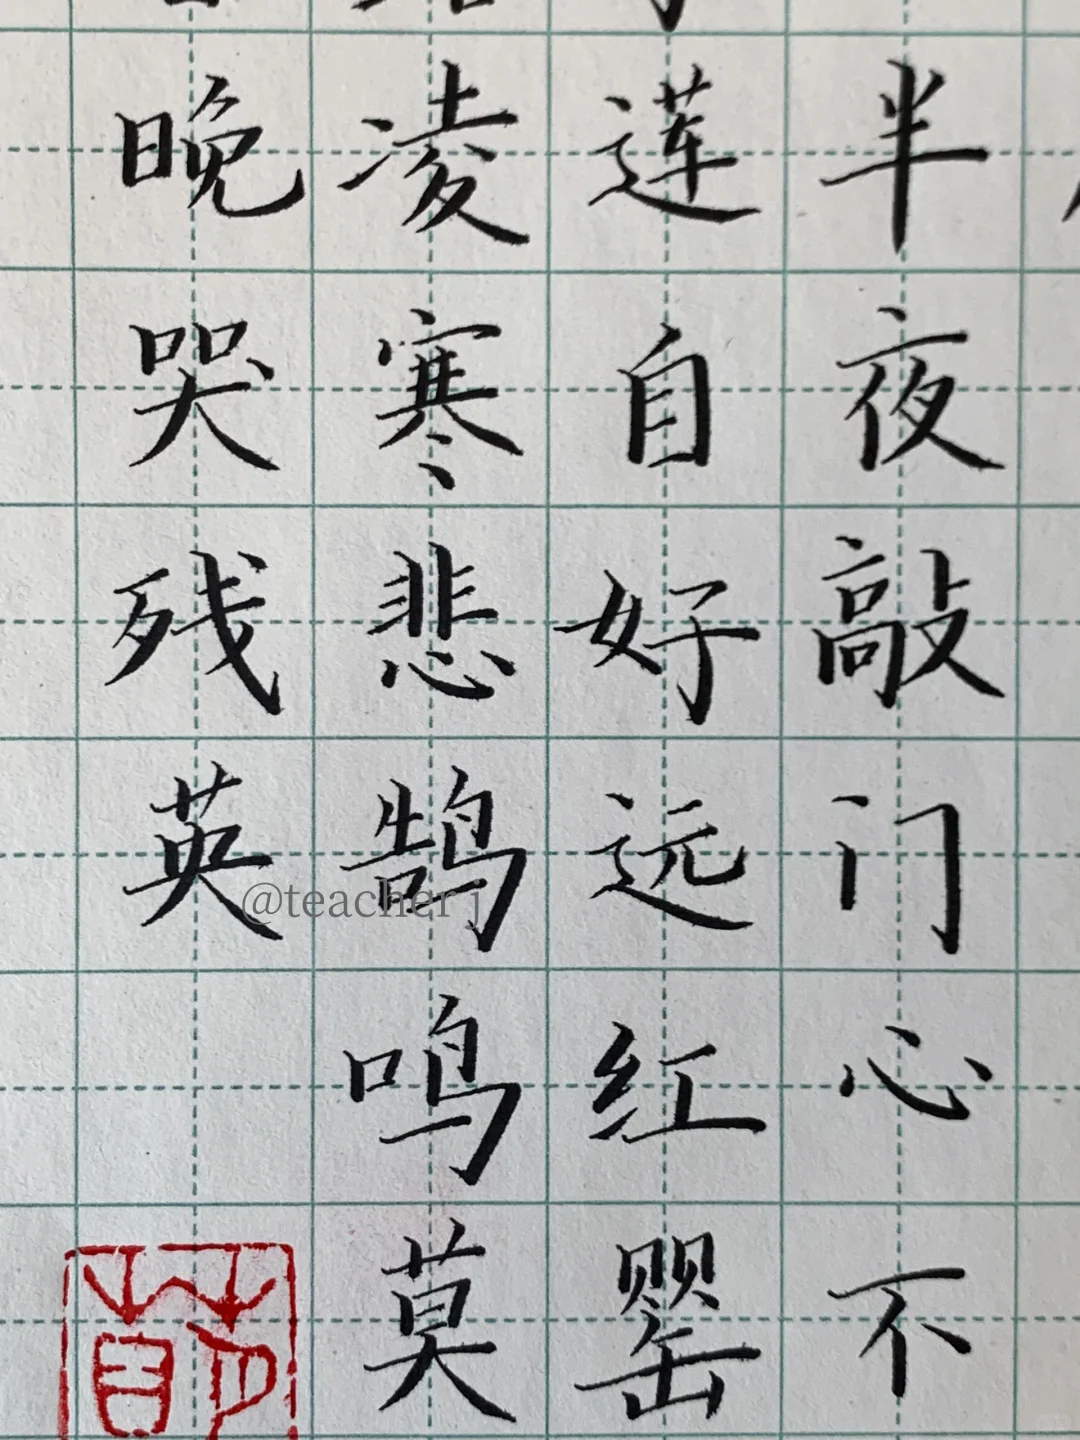 半夜敲门心不
莲自好远红罂
凌寒悲鹄鸣莫
晚哭残英
@teacher j